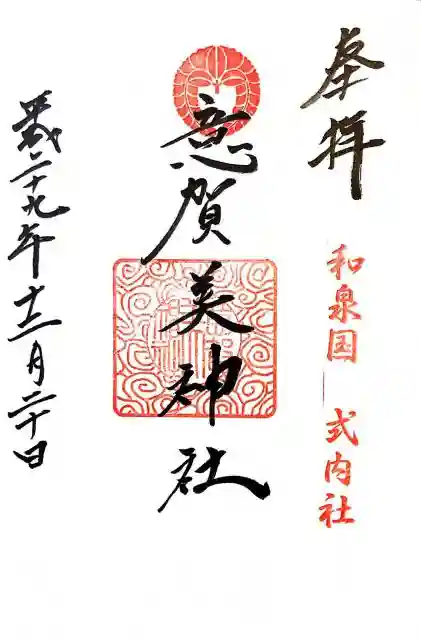 奉拝
和泉国 式内社
意賀美神社
平成二十九年十二月二十日